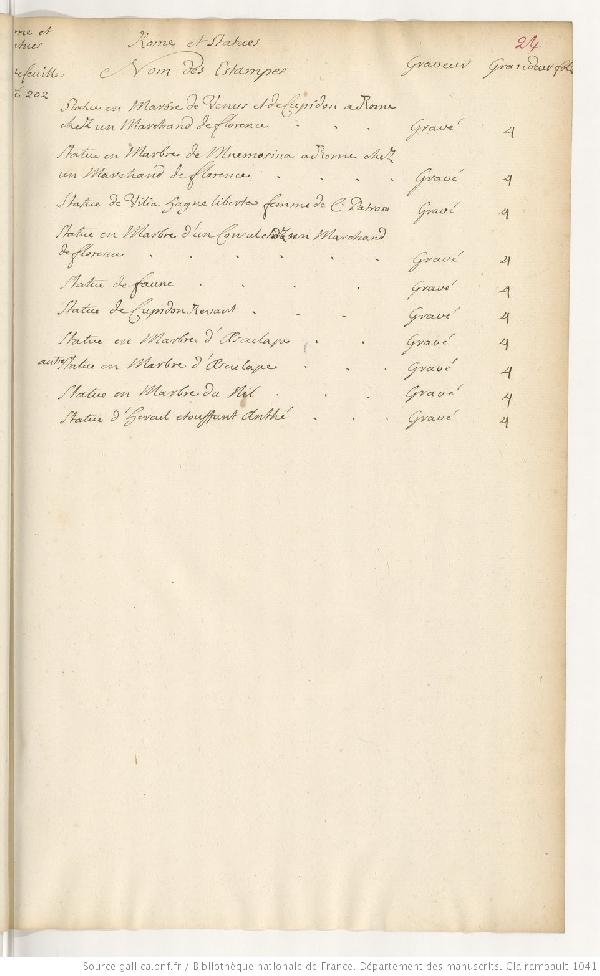 Rome et Statues 24
Nom des Estampes Graveur Grandeur fol
202
Statue en Marbre de Venus et de Cupidon a Rome
chez un Marchand de florence . . . Gravé 4
Statue en Marbre de Mnemosina a Rome chez
un Marchand de florence . . . . Gravé 4
Statue de Vilia Hagne liberta femme de C. Patron Gravé 4
Statue en Marbre d'un Consul chez un Marchand
de florence . . . . . . Gravé 4
Statue de faune . . . . Gravé 4
Statue de Cupidon . . . Gravé 4
Statue en Marbre d'Esculape . . Gravé 4
autre Statue en Marbre d'Esculape . . . Gravé 4
Statue en Marbre du Nil . . . . Gravé 4
Statue d'Hercul etouffant Anthé . . . Gravé 4
Source gallica.bnf.fr / Bibliothèque nationale de France. Département des manuscrits. Clairambault 1041